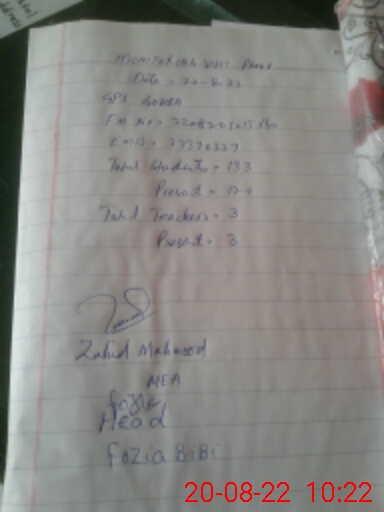 MONITORING VISIT PROOF
Date = 20-8-22
GPS
EM No =
EMIS =
Total Students = 133
Present = 120
Total Teachers = 3
Present = 3
Zahid Mahmood
MEA
fozia
Head
Fozia BiBi
20-08-22 10:22